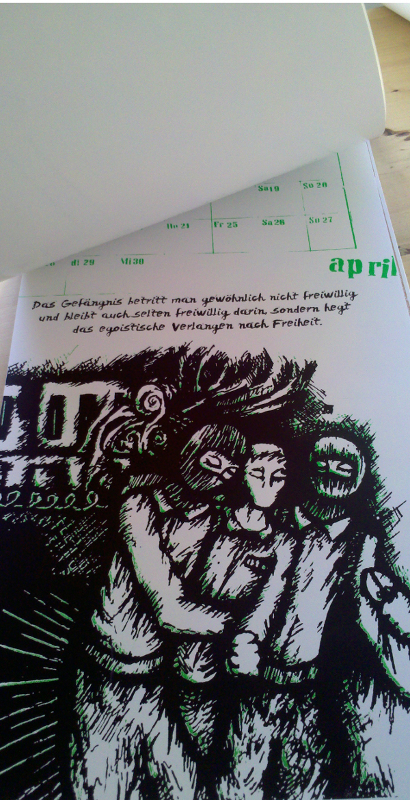 Sa 19 So 20
Do 24 Fr 25 Sa 26 So 27
di 29 Mi 30
april
Das Gefängnis betritt man gewöhnlich nicht freiwillig
und bleibt auch selten freiwillig darin sondern hegt
das egoistische Verlangen nach Freiheit.